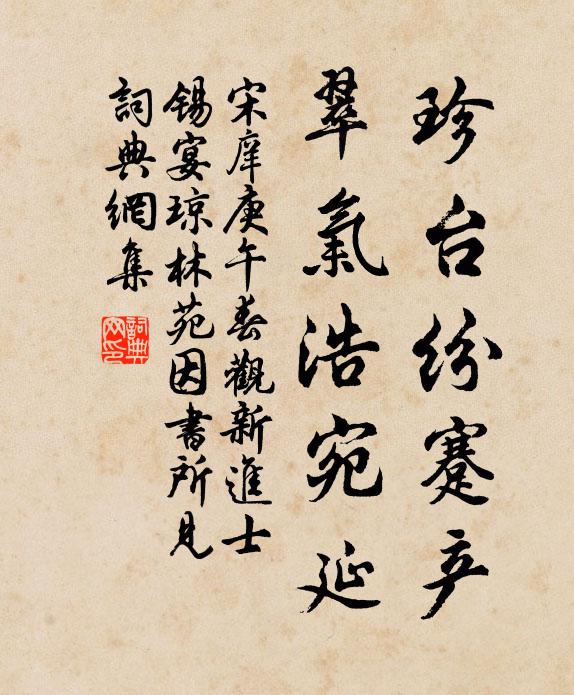 珍台纷蹇产
翠氣浩宛延
宋庠庚午春觀新進士
锡宴琼林苑因書所見
詞典網集
詞典網印